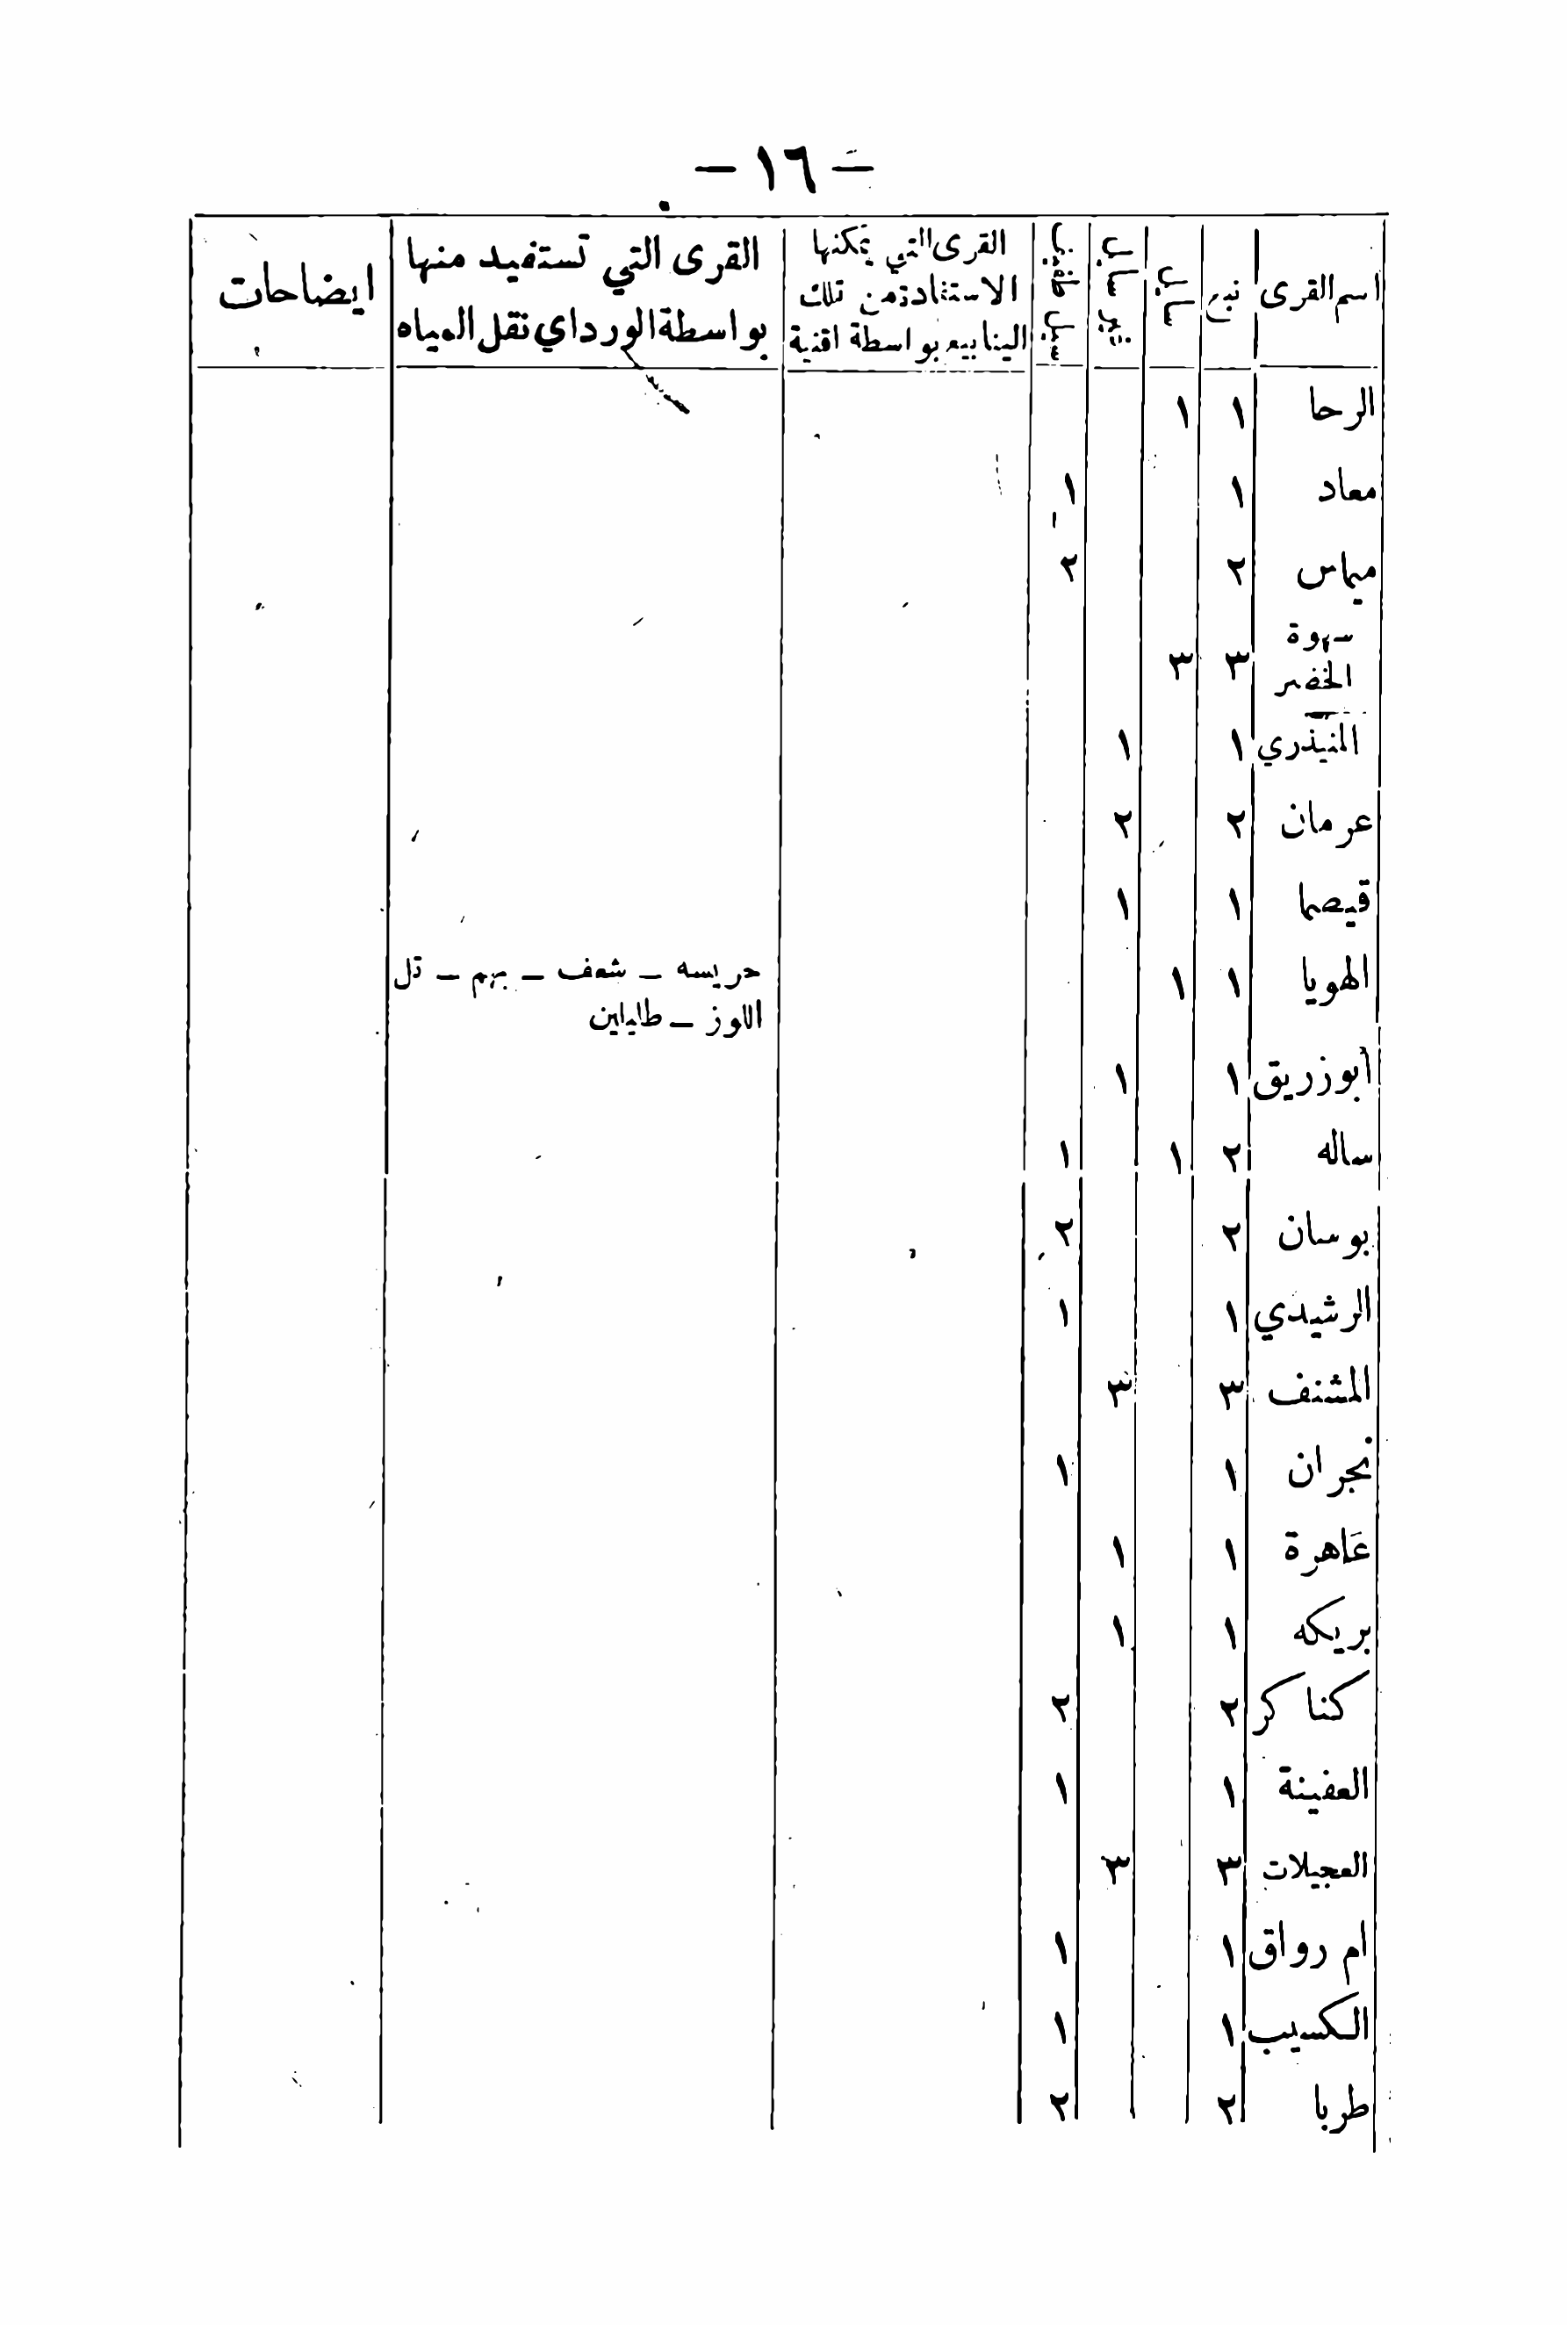 — ١٦ —
اسم القرى نبع سايل غير سايل سيل طفيف القرى التي يمكنها الاستفادة من تلك الينابيع بواسطة اقنية القرى التي تستفيد منها بواسطة الورد اي نقل المياه ايضاحات
الرحا ١ ١
معاد ١ ١
مياس ٢ ٢
سهوة الخضر ٣ ٣
المنيذري ١ ١
عرمان ٢ ٢
قيصما ١ ١
الهويا ١ ١ حريسه — شعف — بهم — تل
اللوز — طليلين
أبو زريق ١ ١
ساله ٢ ١ ١
بوسان ٢ ٢
الرشيدي ١ ١
المشنف ٣ ٣
نجران ١ ١
عاهرة ١ ١
بريكه ١ ١
كناكر ٢ ٢
العفينة ١ ١
العجيلات ٣ ٣
ام رواق ١ ١
الكسيب ١ ١
طربا ٢ ٢